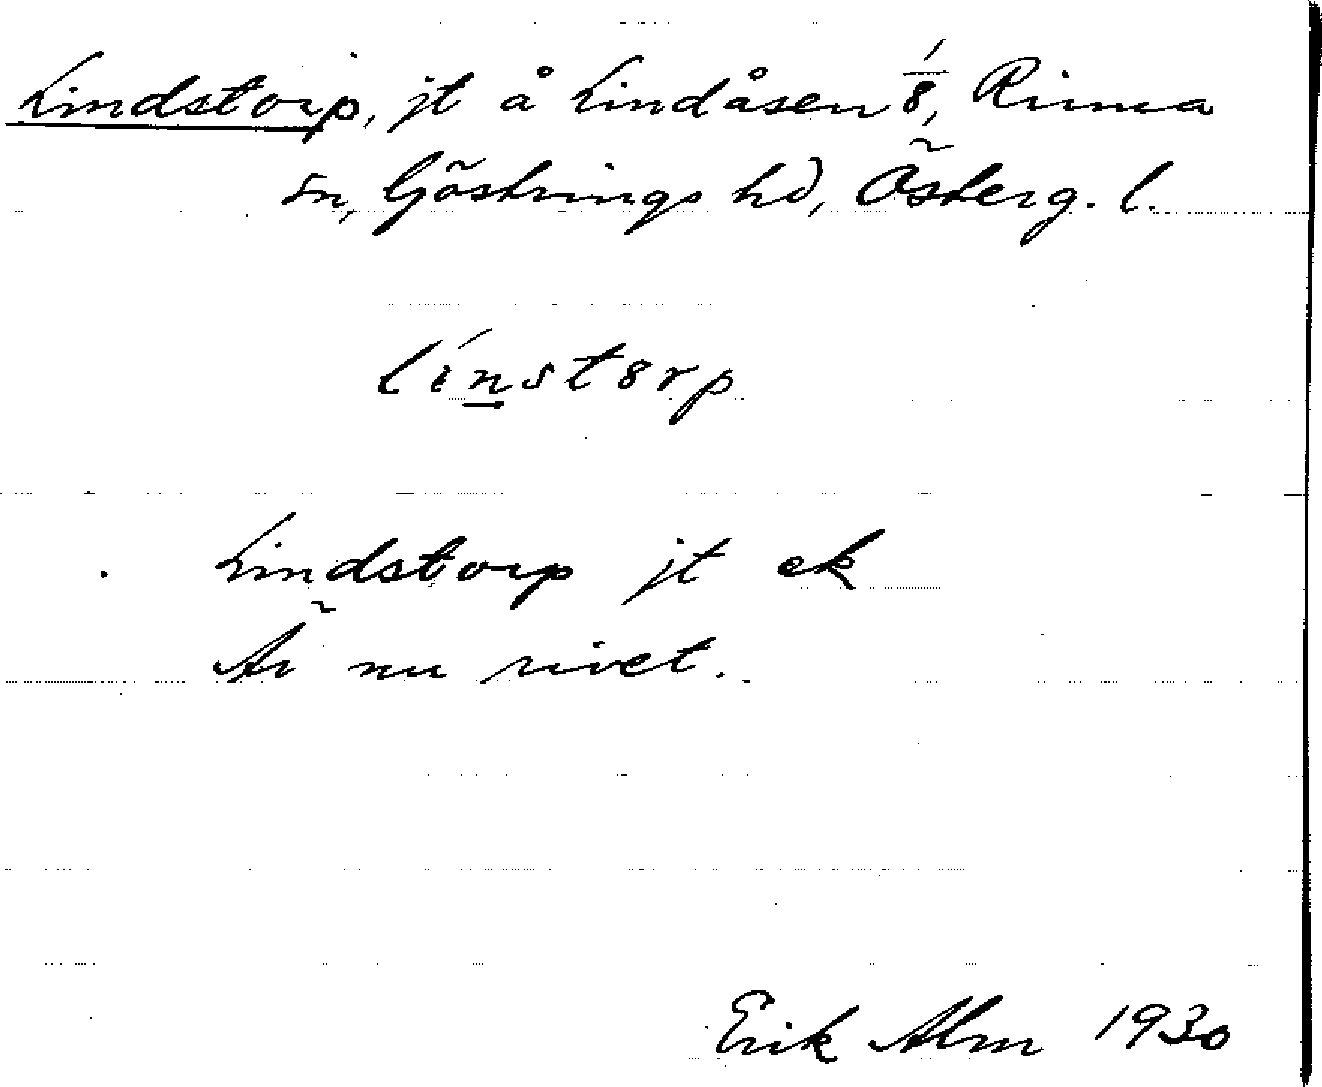 Lindstorp, jt å Lindåsen 1/8, Rinna
sn, Göstrings hd, Österg. l.
línstərp
Lindstorp jt ek
Är nu rivet.
Erik Alm 1930